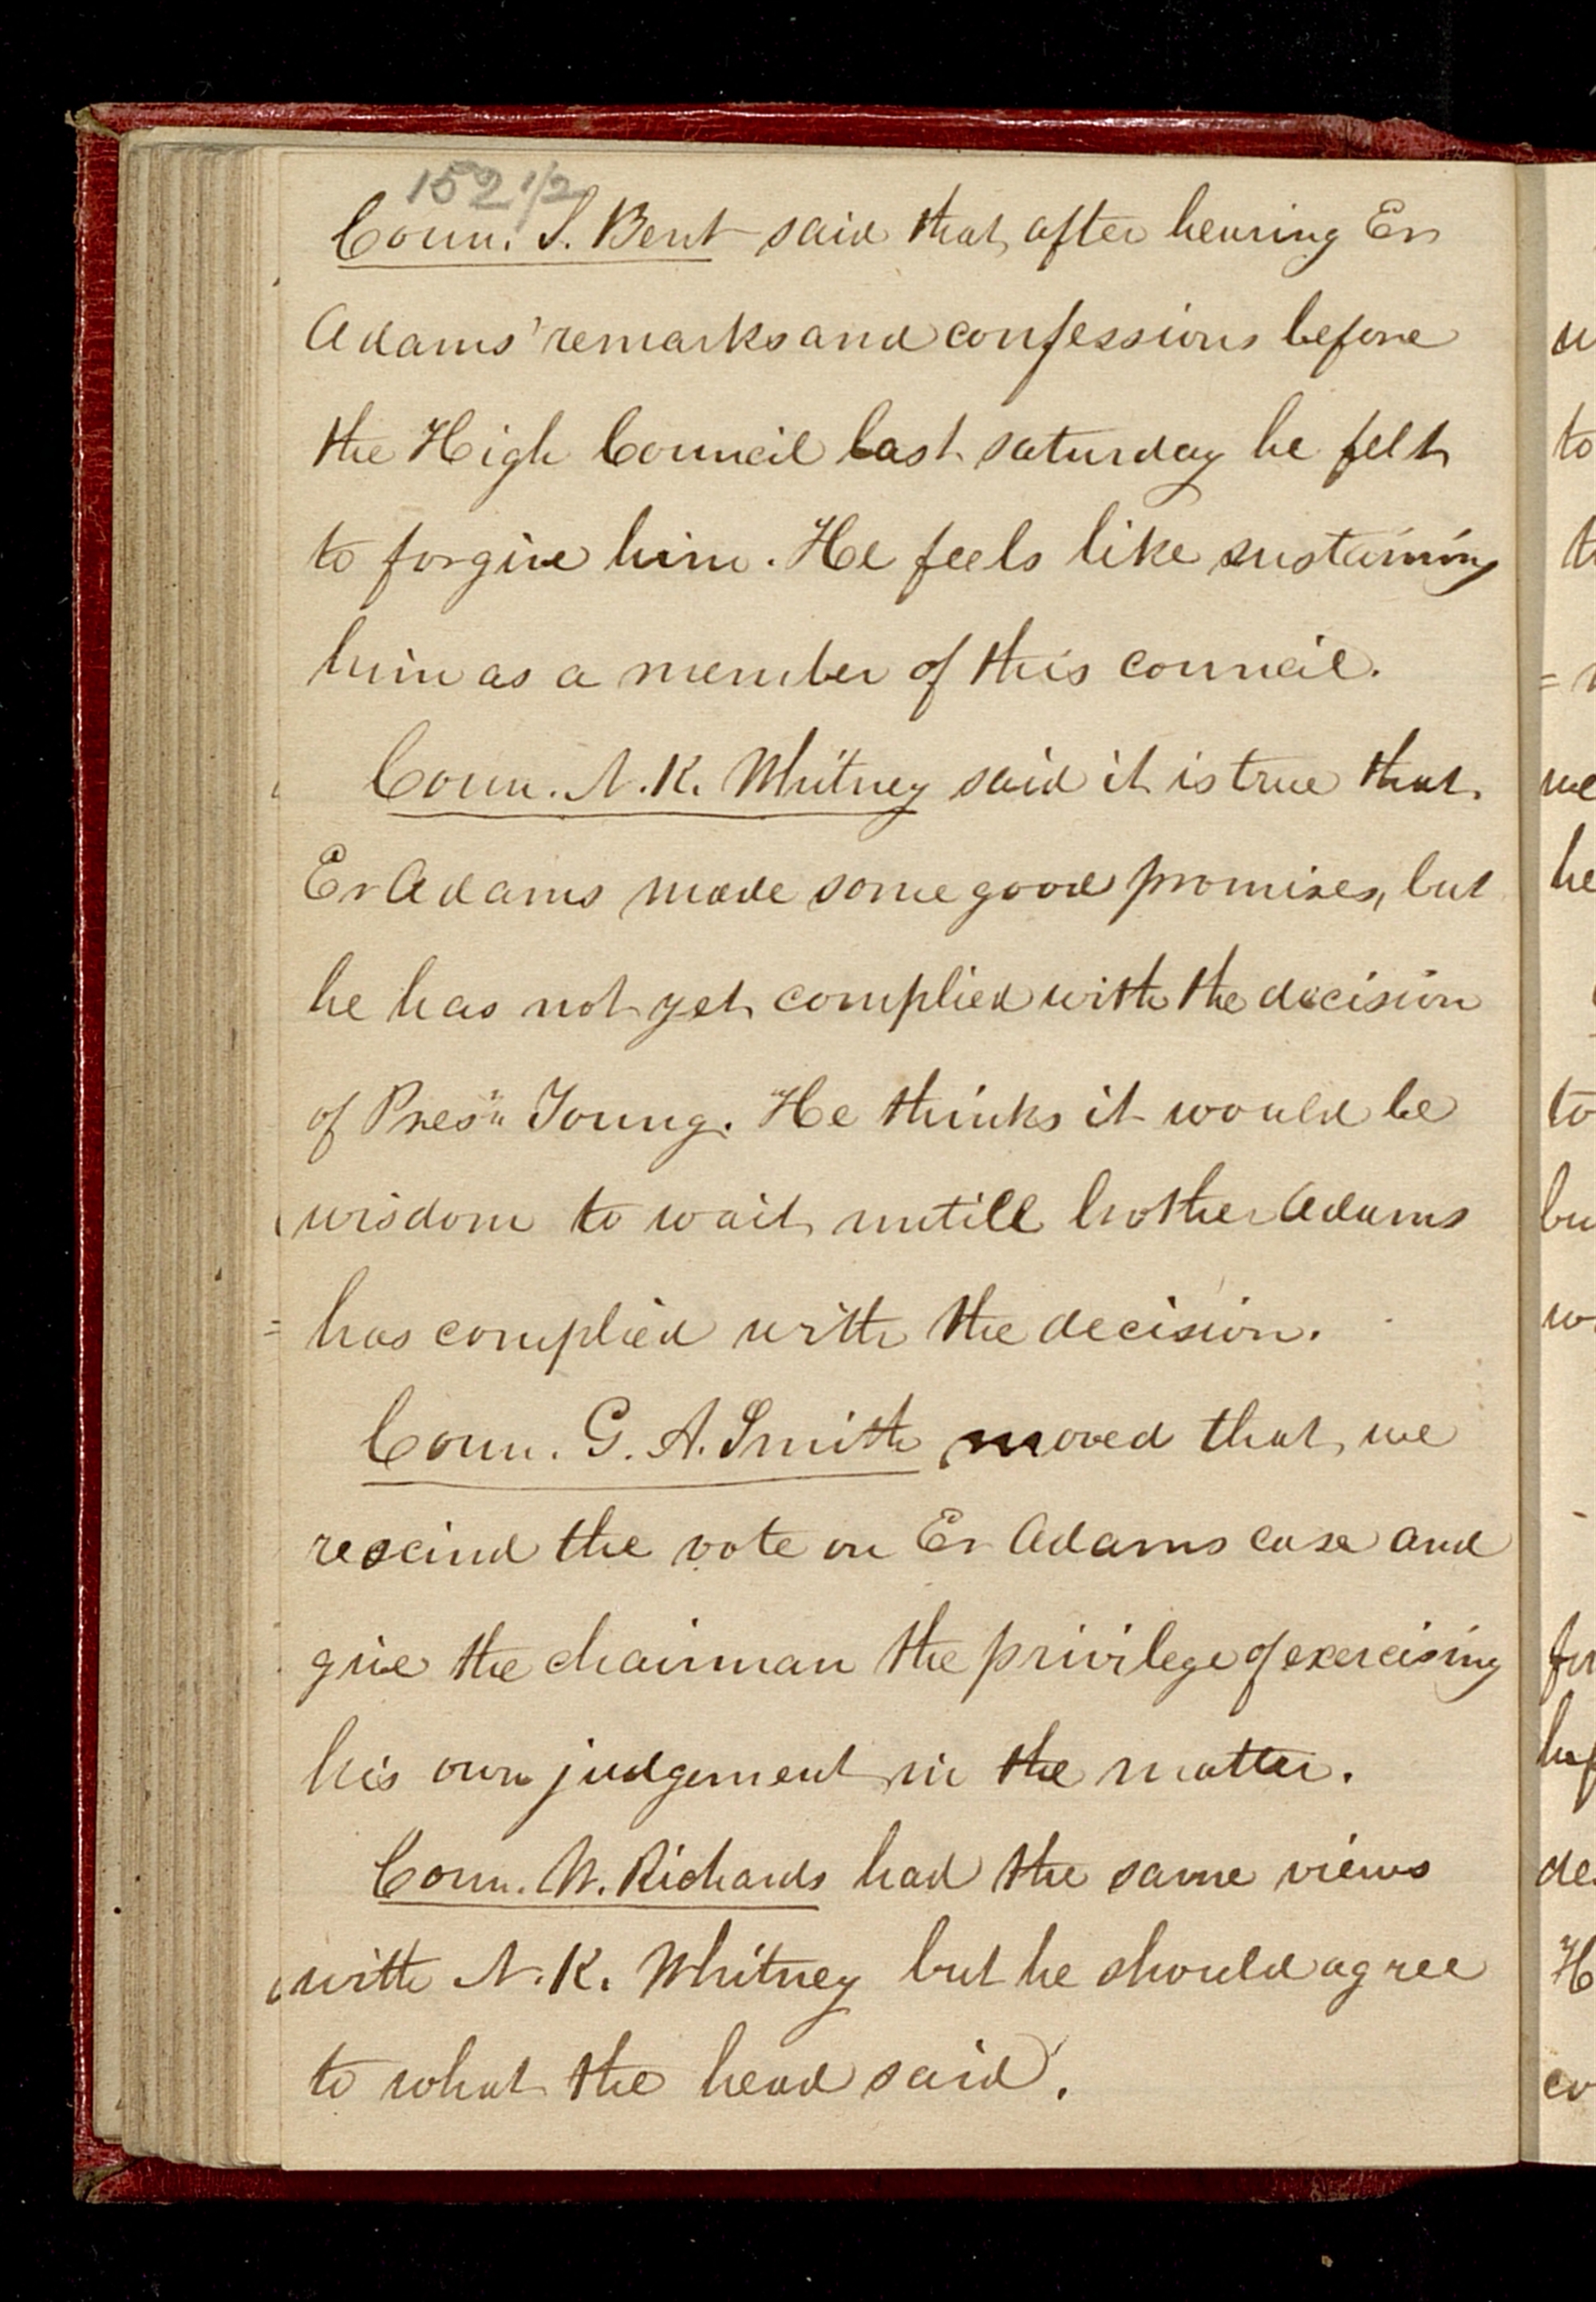 152 1/2
Coun. S. Bent said that after hearing Er
Adams' remarks and confessions before
the High Council last saturday he felt
to forgive him. He feels like sustaining
him as a member of this council.
Coun. N. K. Whitney said it is true that
Er Adams made some good promises, but
he has not yet complied with the decision
of Pres" Young. He thinks it would be
wisdom to wait untill brother Adams
has complied with the decision.
Coun. G. A. Smith moved that we
rescind the vote on Er Adams case and
give the chairman the privilege of exercising
his own judgement in the matter.
Coun. W. Richards had the same views
with N. K. Whitney but he should agree
to what the head said.